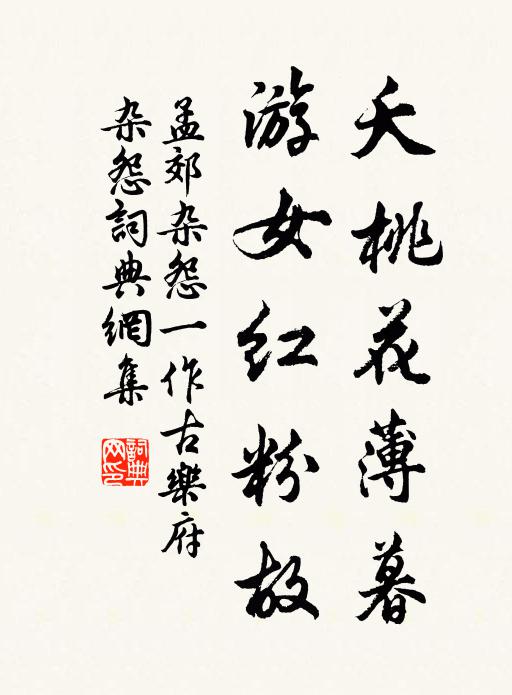 夭桃花薄暮
游女红粉故
孟郊杂怨一作古樂府
杂怨詞典網集
詞典
网印